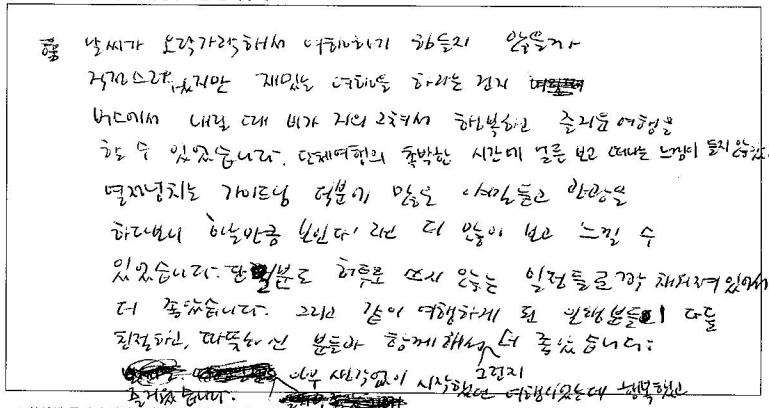 날씨가 오락가락해서 여행하기 힘들지 않을까
걱정스러웠지만 재밌는 여행을 하라는 건지
버스에서 내릴 때 비가 거의 그쳐서 행복하고 즐거운 여행을
할 수 있었습니다. 단체여행의 촉박한 시간에 얼른 보고 떠나는 느낌이 들지 않았고
열정넘치는 가이드님 덕분에 많은 관광을
하다보니 아는만큼 보인다! 라고 더 많이 보고 느낄 수
있었습니다. 단 1분도 허투루 쓰지 않는 일정들로 꽉 채워져있어서
더 좋았습니다. 그리고 같이 여행하게 된 일행분들이 다들
친절하고, 따뜻하신 분들과 함께해서 더 좋았습니다.
그런지
아무 생각없이 시작했던 여행이었는데 행복했고
즐거웠습니다.